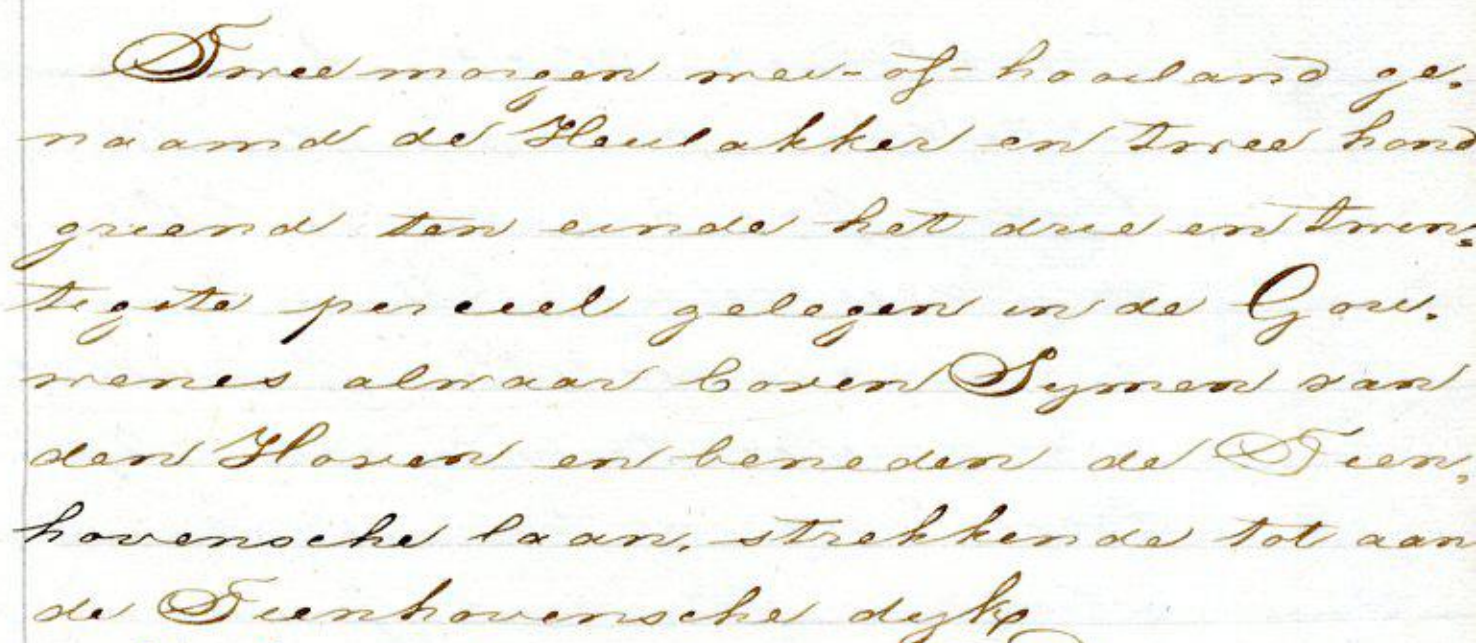 Twee morgen wei-of-hooiland ge„
naamd de Heulakker en twee hond
griend ten einde het drie en twin„
tigste perceel gelegen in de Gou„
wenes alwaar boven Symen van
den Hoven en beneden de Tien„
hovensche laan, strekkende tot aan
de Tienhovensche dyk